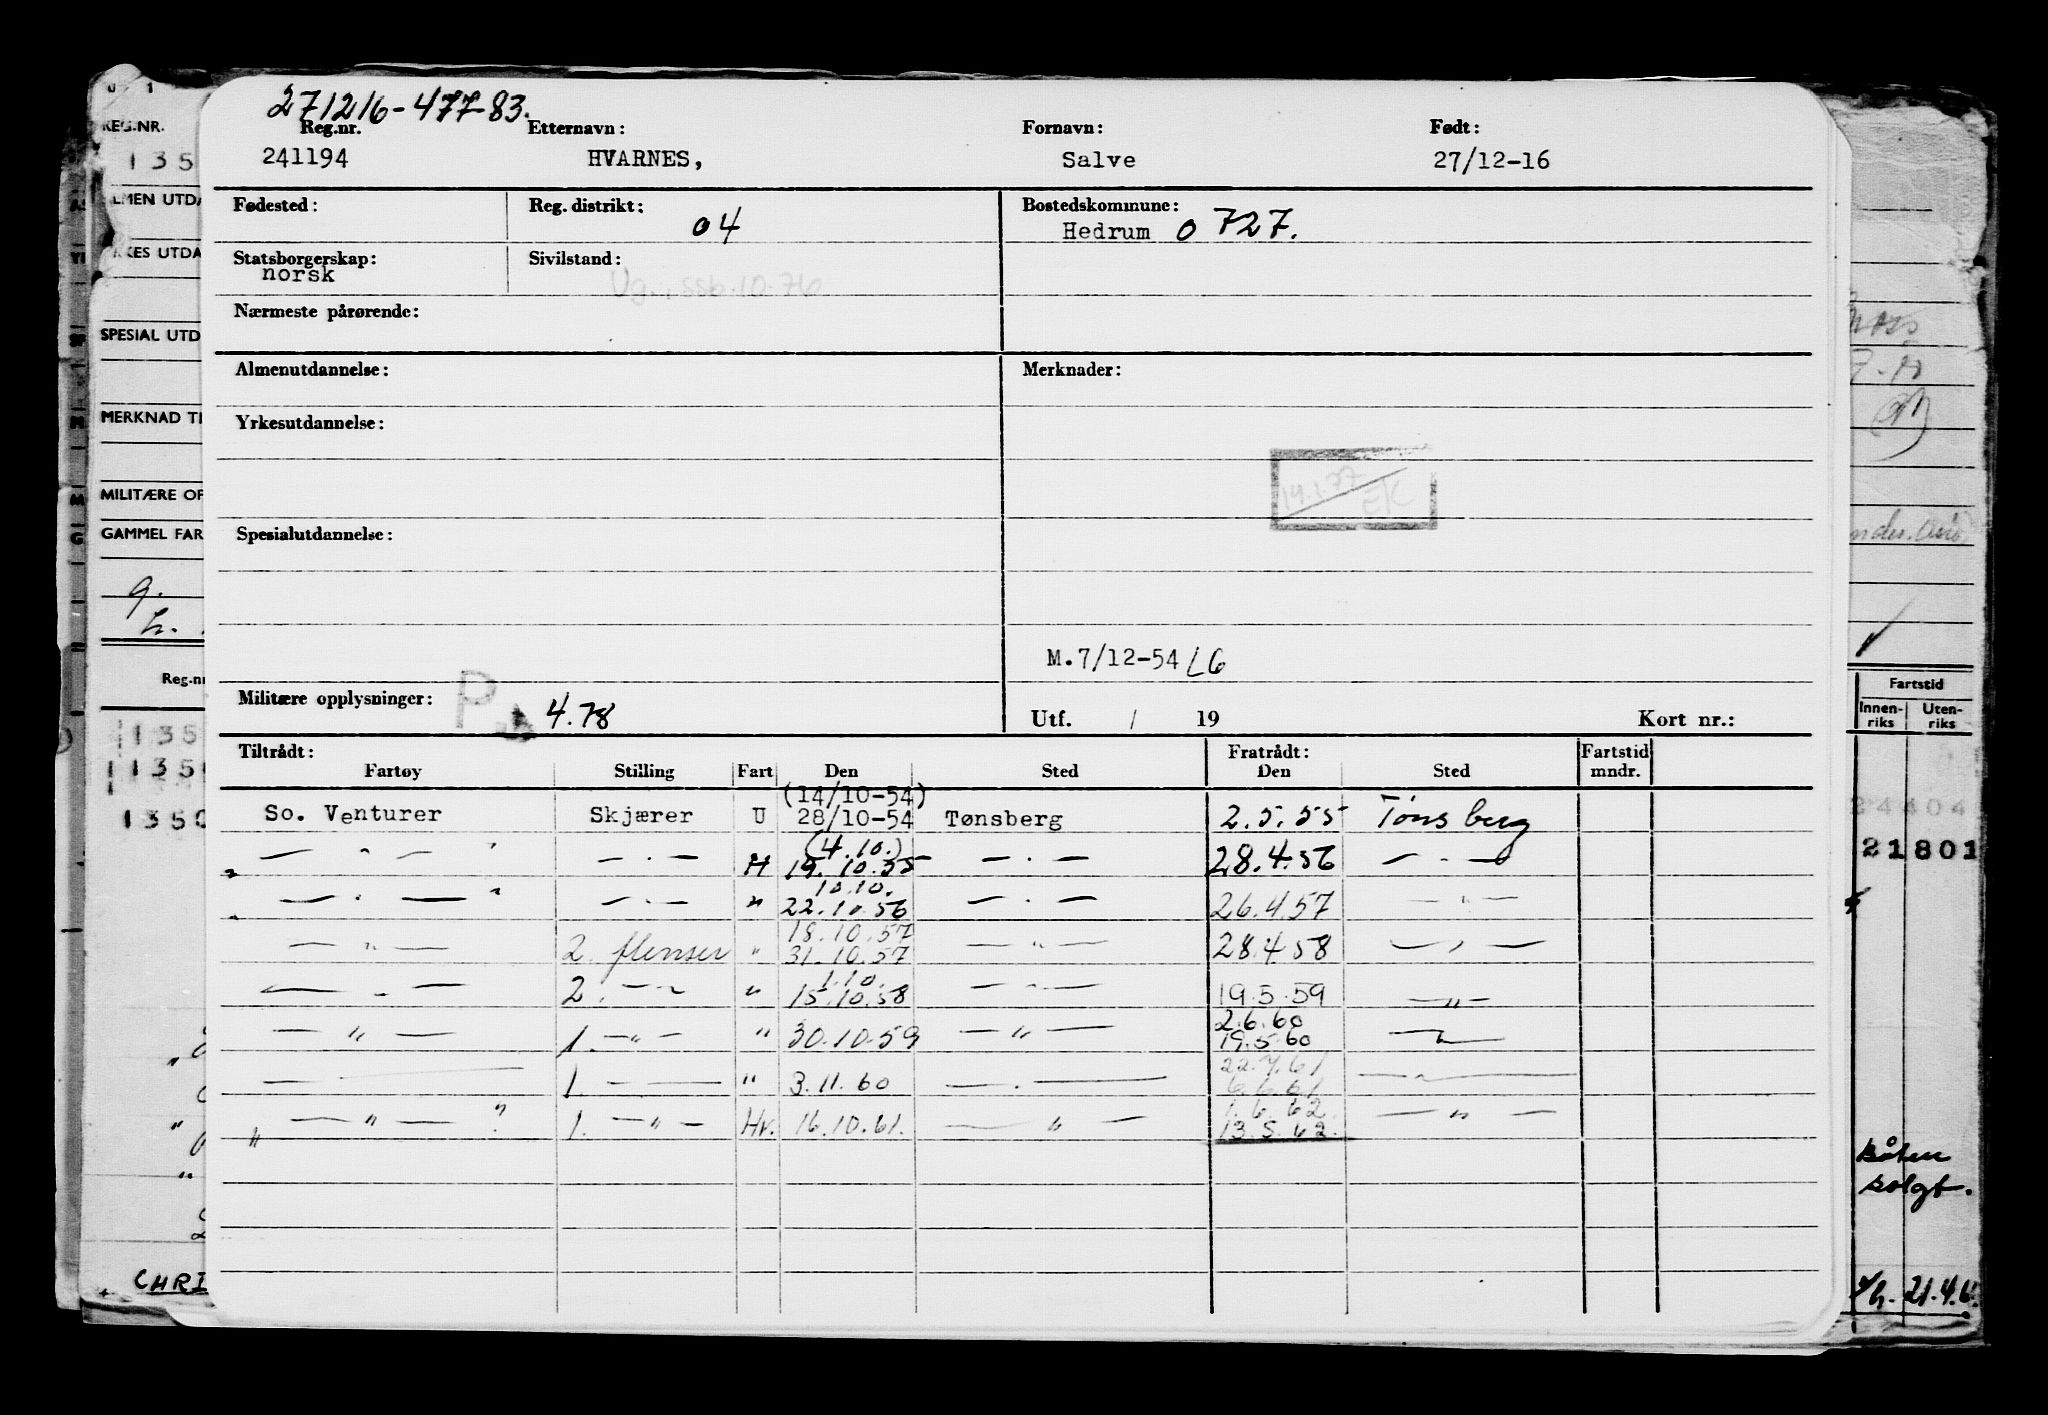 271216-477-83.
Reg.nr. Etternavn: Fornavn: Født:
241194 HVARNES, Salve 27/12-16
Fødested: Reg. distrikt: 04 Bostedskommune:
Hedrum 0727.
Statsborgerskap: Sivilstand:
norsk Ug., ssb.10.76
Nærmeste pårørende:
Almenutdannelse: Merknader:
Yrkesutdannelse:
14.1.77 EK
Spesialutdannelse:
M.7/12-54 LG
Militære opplysninger: P 4.78
Utf. / 19 Kort nr.:
Tiltrådt: Fratrådt: Fartstid
Fartøy Stilling Fart Den Sted Den Sted mndr.
(14/10-54)
So. Venturer Skjærer U 28/10-54 Tønsberg 2.5.55 Tønsberg
(4.10.)
— " — — . — H 19.10.55 — . — 28.4.56 — . —
10.10.
— . — — . — " 22.10.56 — . — 26.4.57 — " —
18.10.57
— " — 2. flenser " 31.10.57 — " — 28.4.58 — " —
1.10.
— " — 2. — " — " 15.10.58 — . — 19.5.59 — " —
2.6.60
— " — 1. — " — " 30.10.59 — " — 19.5.60 — " —
22.7.61
— — 1. — — " 3.11.60 — . — 6.6.61 — " —
1.6.62.
" — " — " 1. — " — Hv. 16.10.61. — " — 13.5.62. — " —
REG.NR.
135
SPESIAL UTD
MERKNAD TI
MILITÆRE OP
GAMMEL FAR
Reg.nr
135
135
1350
CHRI
Fartstid
Innen-riks Uten-riks
24404
21801
Båten
solgt.